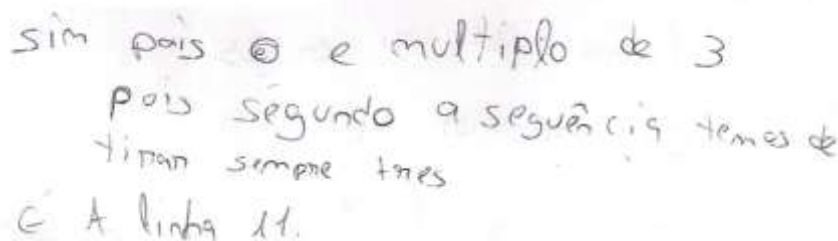 sim pois 0 e multiplo de 3
pois segundo a seguência temos de
tirar sempre tres
E A linha 11.